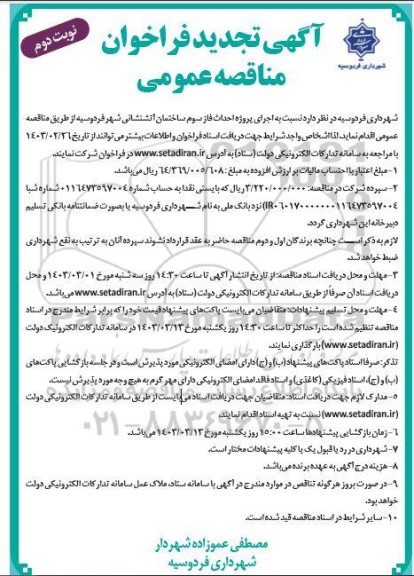 نوبت دوم
آگهی تجدید فراخوان
مناقصه عمومی
شهرداری فردوسیه
شهرداری فردوسیه در نظر دارد نسبت به اجرای پروژه احداث فاز سوم ساختمان آتشنشانی شهر فردوسیه از طریق مناقصه
عمومی اقدام نماید. لذا اشخاص واجد شرایط جهت دریافت اسناد فراخوان و اطلاعات بیشتر می‌توانند از تاریخ ۱۴۰۳/۰۲/۲۶
با مراجعه به سامانه تدارکات الکترونیکی دولت (ستاد) به آدرس www.setadiran.ir در فراخوان شرکت نمایند.
۱- مبلغ اعتبار با احتساب مالیات بر ارزش افزوده به مبلغ: ۶۴/۳۶۹/۰۰۵/۶۰۸ ریال می‌باشد.
۲- سپرده شرکت در مناقصه: ۳/۲۲۰/۰۰۰/۰۰۰ ریال که بایستی نقدا به حساب شماره ۰۱۱۶۴۷۳۵۹۷۰۰۴ شماره شبا
نزد بانک ملی به نام شهرداری فردوسیه یا بصورت ضمانتنامه بانکی تسلیم
دبیرخانه این شهرداری گردد.
لازم به ذکر است چنانچه برندگان اول و دوم مناقصه حاضر به عقد قرارداد نشوند سپرده آنان به ترتیب به نفع شهرداری
ضبط خواهد شد.
۳- مهلت و محل دریافت اسناد مناقصه: از تاریخ انتشار آگهی تا ساعت ۱۴:۳۰ روز سه شنبه مورخ ۱۴۰۳/۰۳/۰۱ و محل
دریافت اسناد آن صرفاً از طریق سامانه تدارکات الکترونیکی دولت (ستاد) به آدرس www.setadiran.ir می‌باشد.
۴- مهلت و محل تسلیم پیشنهادات: متقاضیان می‌بایست پاکت‌های پیشنهاد قیمت خود را که برابر شرایط مندرج در اسناد
مناقصه تنظیم شده است را حداکثر تا ساعت ۱۴:۳۰ روز یکشنبه مورخ ۱۴۰۳/۰۳/۱۳ در سامانه تدارکات الکترونیکی دولت
(www.setadiran.ir) بارگذاری نمایند.
تذکر: صرفا اسناد پاکت‌های پیشنهاد (ب) و (ج) دارای امضای الکترونیکی مورد پذیرش است و در جلسه بازگشایی پاکت‌های
(ب) و (ج)، اسناد فیزیکی (کاغذی) و اسناد فاقد امضای الکترونیکی دارای مهر گرم به هیچ وجه مورد پذیرش نیست.
۵- مدارک لازم جهت دریافت اسناد: متقاضیان جهت دریافت اسناد می‌بایست از طریق سامانه تدارکات الکترونیکی دولت
(www.setadiran.ir) نسبت به تهیه اسناد اقدام نمایند.
۶- زمان بازگشایی پیشنهادها ساعت ۱۵:۰۰ روز یکشنبه مورخ ۱۴۰۳/۰۳/۱۳ می‌باشد.
۷- شهرداری در رد یا قبول یک یا کلیه پیشنهادات مختار است.
۸- هزینه درج آگهی به عهده برنده می‌باشد.
۹- در صورت بروز هر گونه تناقض در موارد مندرج در آگهی با سامانه ستاد، ملاک عمل سامانه تدارکات الکترونیکی دولت
خواهد بود.
۱۰- سایر شرایط در اسناد مناقصه قید شده است.
مصطفی عموزاده شهردار
شهرداری فردوسیه
۰۲۱-۸۸۳۴۹۶۷۰-۵